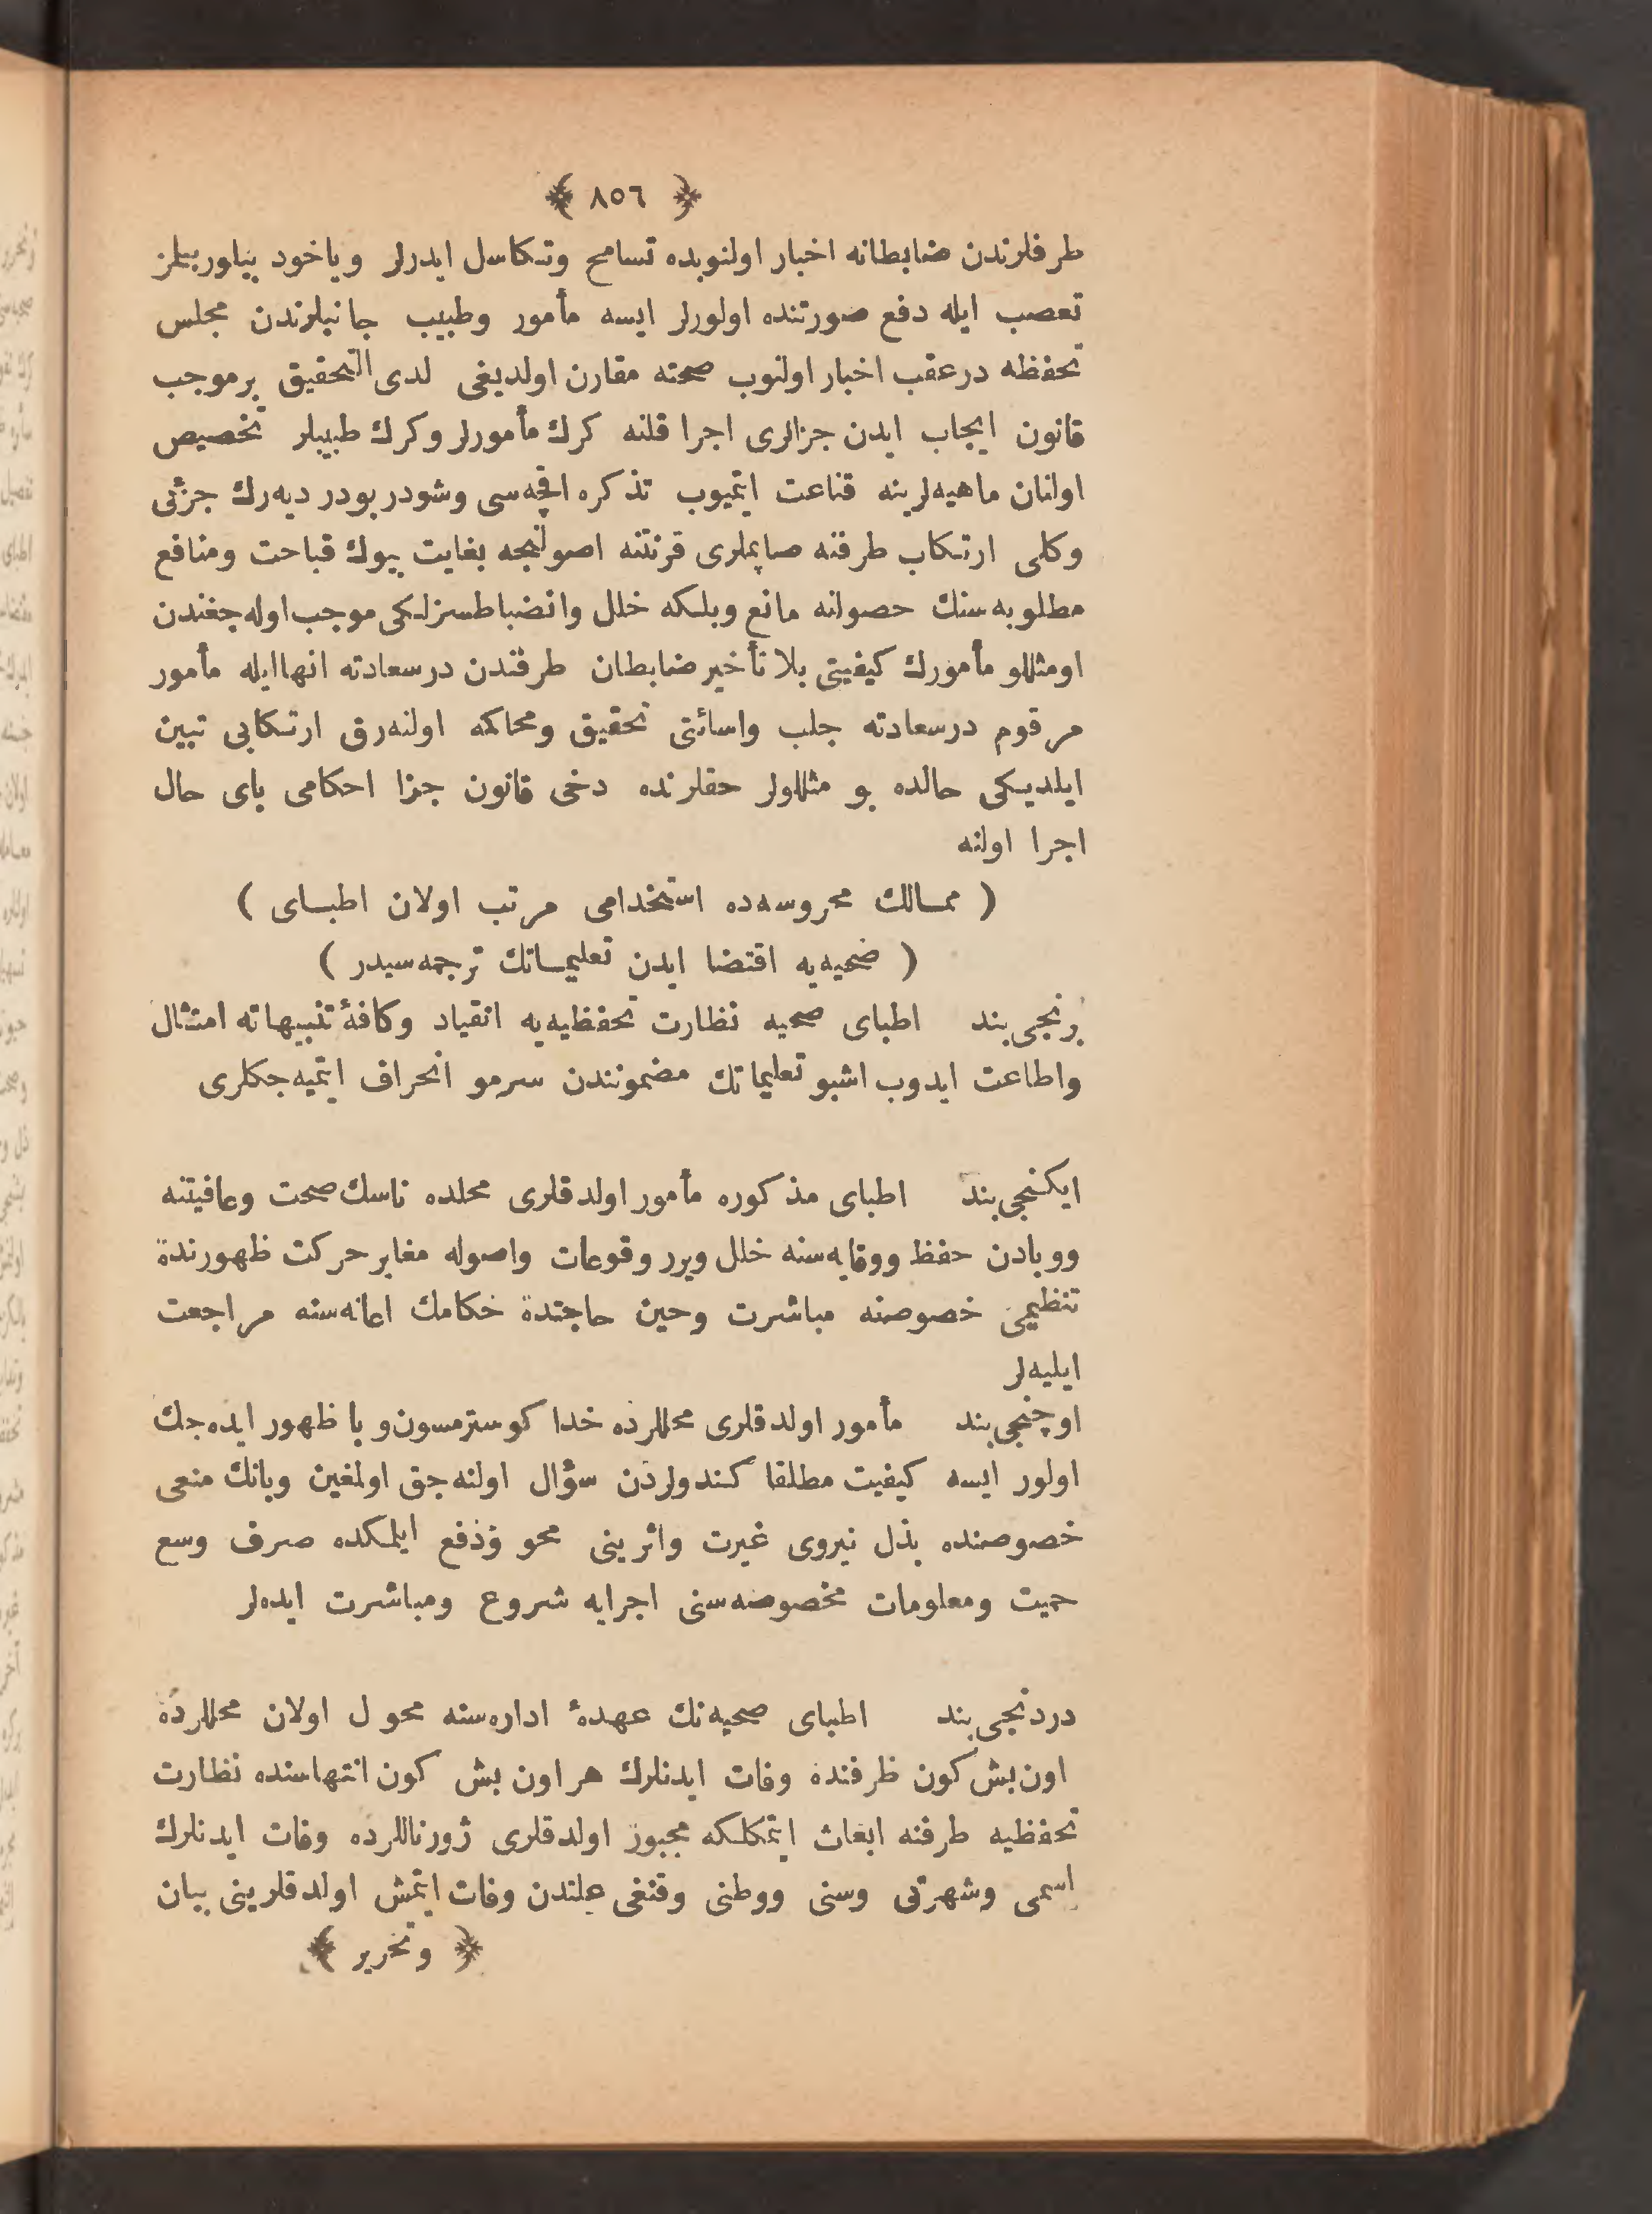 ﴿ ٨٥٦ ﴾
طرفلرندن ضابطانه اخبار اولنوبده تسامح وتكاسل ايدرلر وياخود بيلوربيلز
تعصب ايله دفع صورتنده اولورلر ايسه مأمور وطبيب جانبلرندن مجلس
تحفظه درعقب اخبار اولنوب صحته مقارن اولديغى لدى التحقيق برموجب
قانون ايجاب ايدن جزالرى اجرا قلنه كرك مأمورلر وكرك طبيبلر تخصيص
اولنان ماهيه‌لرينه قناعت ايتميوب تذكره اقچه‌سى وشودر بودر ديه‌رك جزئى
وكلى ارتكاب طرفنه صاپملرى قرنتنه اصولنجه بغايت بيوك قباحت ومنافع
مطلوبه‌سنك حصولنه مانع وبلكه خلل وانضباطسزلكى موجب اوله‌جغندن
اومثللو مأمورك كيفيتى بلا تأخير ضابطان طرفندن درسعادته انها ايله مأمور
مرقوم درسعادته جلب واسائتى تحقيق ومحاكمه اولنه‌رق ارتكابى تبين
ايلديكى حالده بو مثللولر حقلرنده دخى قانون جزا احكامى باى حال
اجرا اولنه
( ممالك محروسه‌ده استخدامى مرتب اولان اطباى )
( صحيه‌يه اقتضا ايدن تعليماتك ترجمه‌سيدر )
برنجى بند اطباى صحيه نظارت تحفظيه‌يه انقياد وكافهٔ تنبيهاته امتثال
واطاعت ايدوب اشبو تعليماتك مضمونندن سرمو انحراف ايتميه‌جكلرى
ايكنجى بند اطباى مذكوره مأمور اولدقلرى محلده ناسك صحت وعافيتنه
ووبادن حفظ ووقايه‌سنه خلل ويرر وقوعات واصوله مغاير حركت ظهورندة
تنظيمى خصوصنه مباشرت وحين حاجتدة حكامك اعانه‌سنه مراجعت
ايليه‌لر
اوچنجى بند مأمور اولدقلرى محللرده خدا كوسترمسون وبا ظهور ايده‌جك
اولور ايسه كيفيت مطلقا كندولردن سؤال اولنه‌جق اولمغين وبانك منعى
خصوصنده بذل نيروى غيرت واثرينى محو ودفع ايلمكده صرف وسع
حميت ومعلومات مخصوصه‌سنى اجرايه شروع ومباشرت ايده‌لر
دردنجى بند اطباى صحيه‌نك عهدهٔ اداره‌سنه محول اولان محللردة
اون بش كون ظرفنده وفات ايدنلرك هر اون بش كون انتهاسنده نظارت
تحفظيه طرفنه ابعاث ايتمكلكه مجبور اولدقلرى ژورناللرده وفات ايدنلرك
اسمى وشهرتى وسنى ووطنى وقنغى علتدن وفات ايتمش اولدقلرينى بيان
﴿ وتحرير ﴾